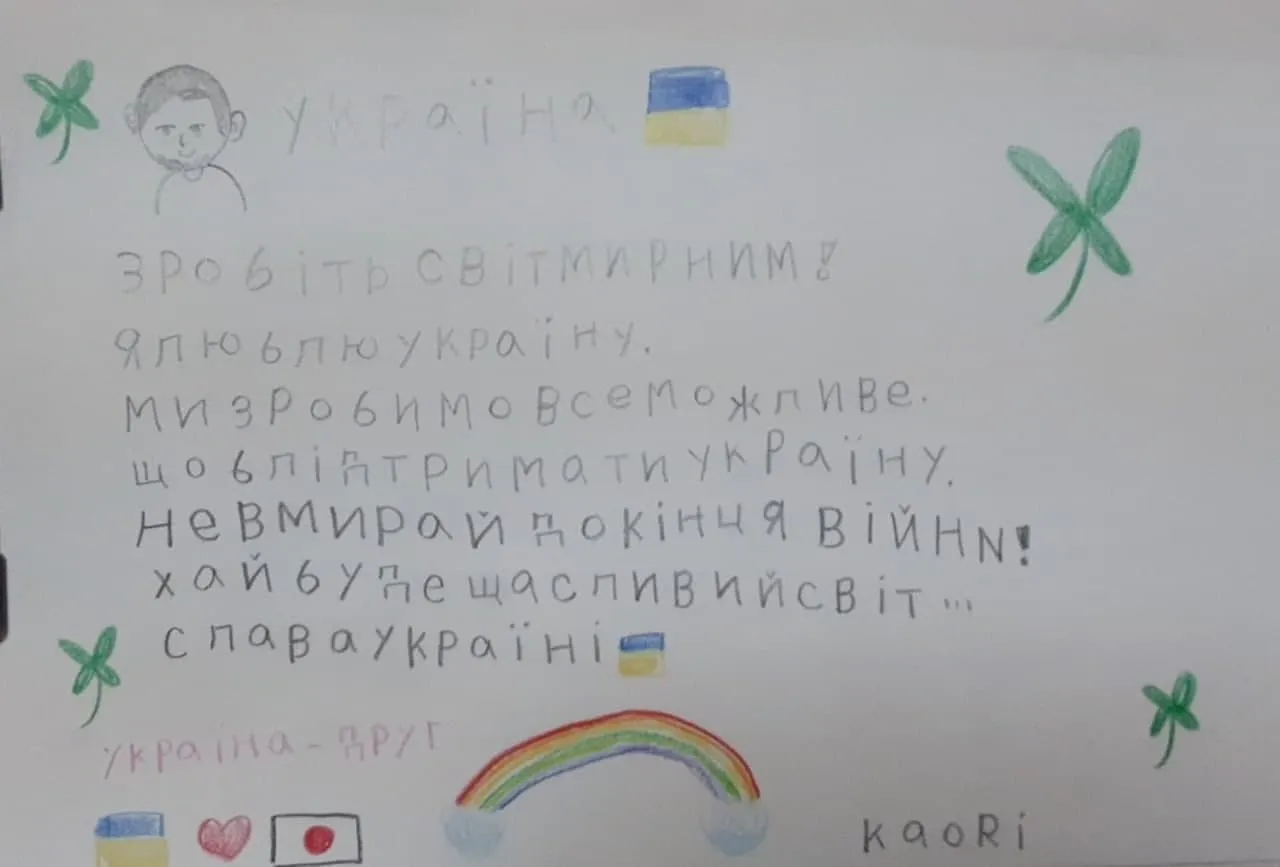 україна
зробіть світмирним!
ялюблюукраїну.
мизробимовсеможливе.
щобпідтриматиукраїну.
невмирайдокінця війни!
хайбудещасливийсвіт...
славаукраїні
україна-друг
kaoRi